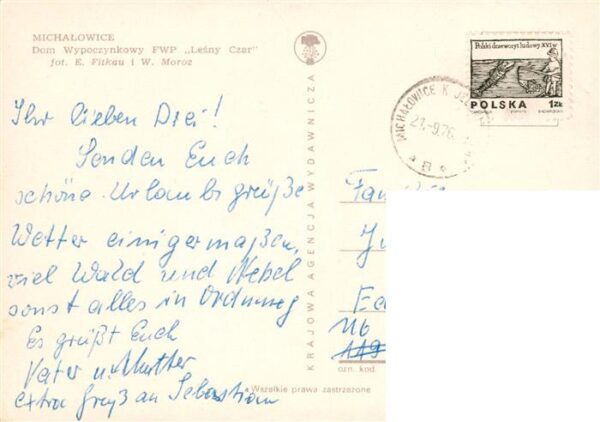 MICHAŁOWICE
Dom Wypoczynkowy FWP „Leśny Czar"
fot. E. Fitkau i W. Moroz
Ihr lieben Drei!
Senden Euch
schöne Urlaubsgrüße
Wetter einigermaßen,
viel Wald und Nebel
sonst alles in Ordnung
Es grüßt Euch
Vater u Mutter
extra Gruß an Sebastian
KRAJOWA AGENCJA WYDAWNICZA
Polski drzeworyt ludowy XVI w
POLSKA 1 Zł
MICHAŁOWICE K
Fam
Ju
116
ozn. kod.
Wszelkie prawa zastrzeżone